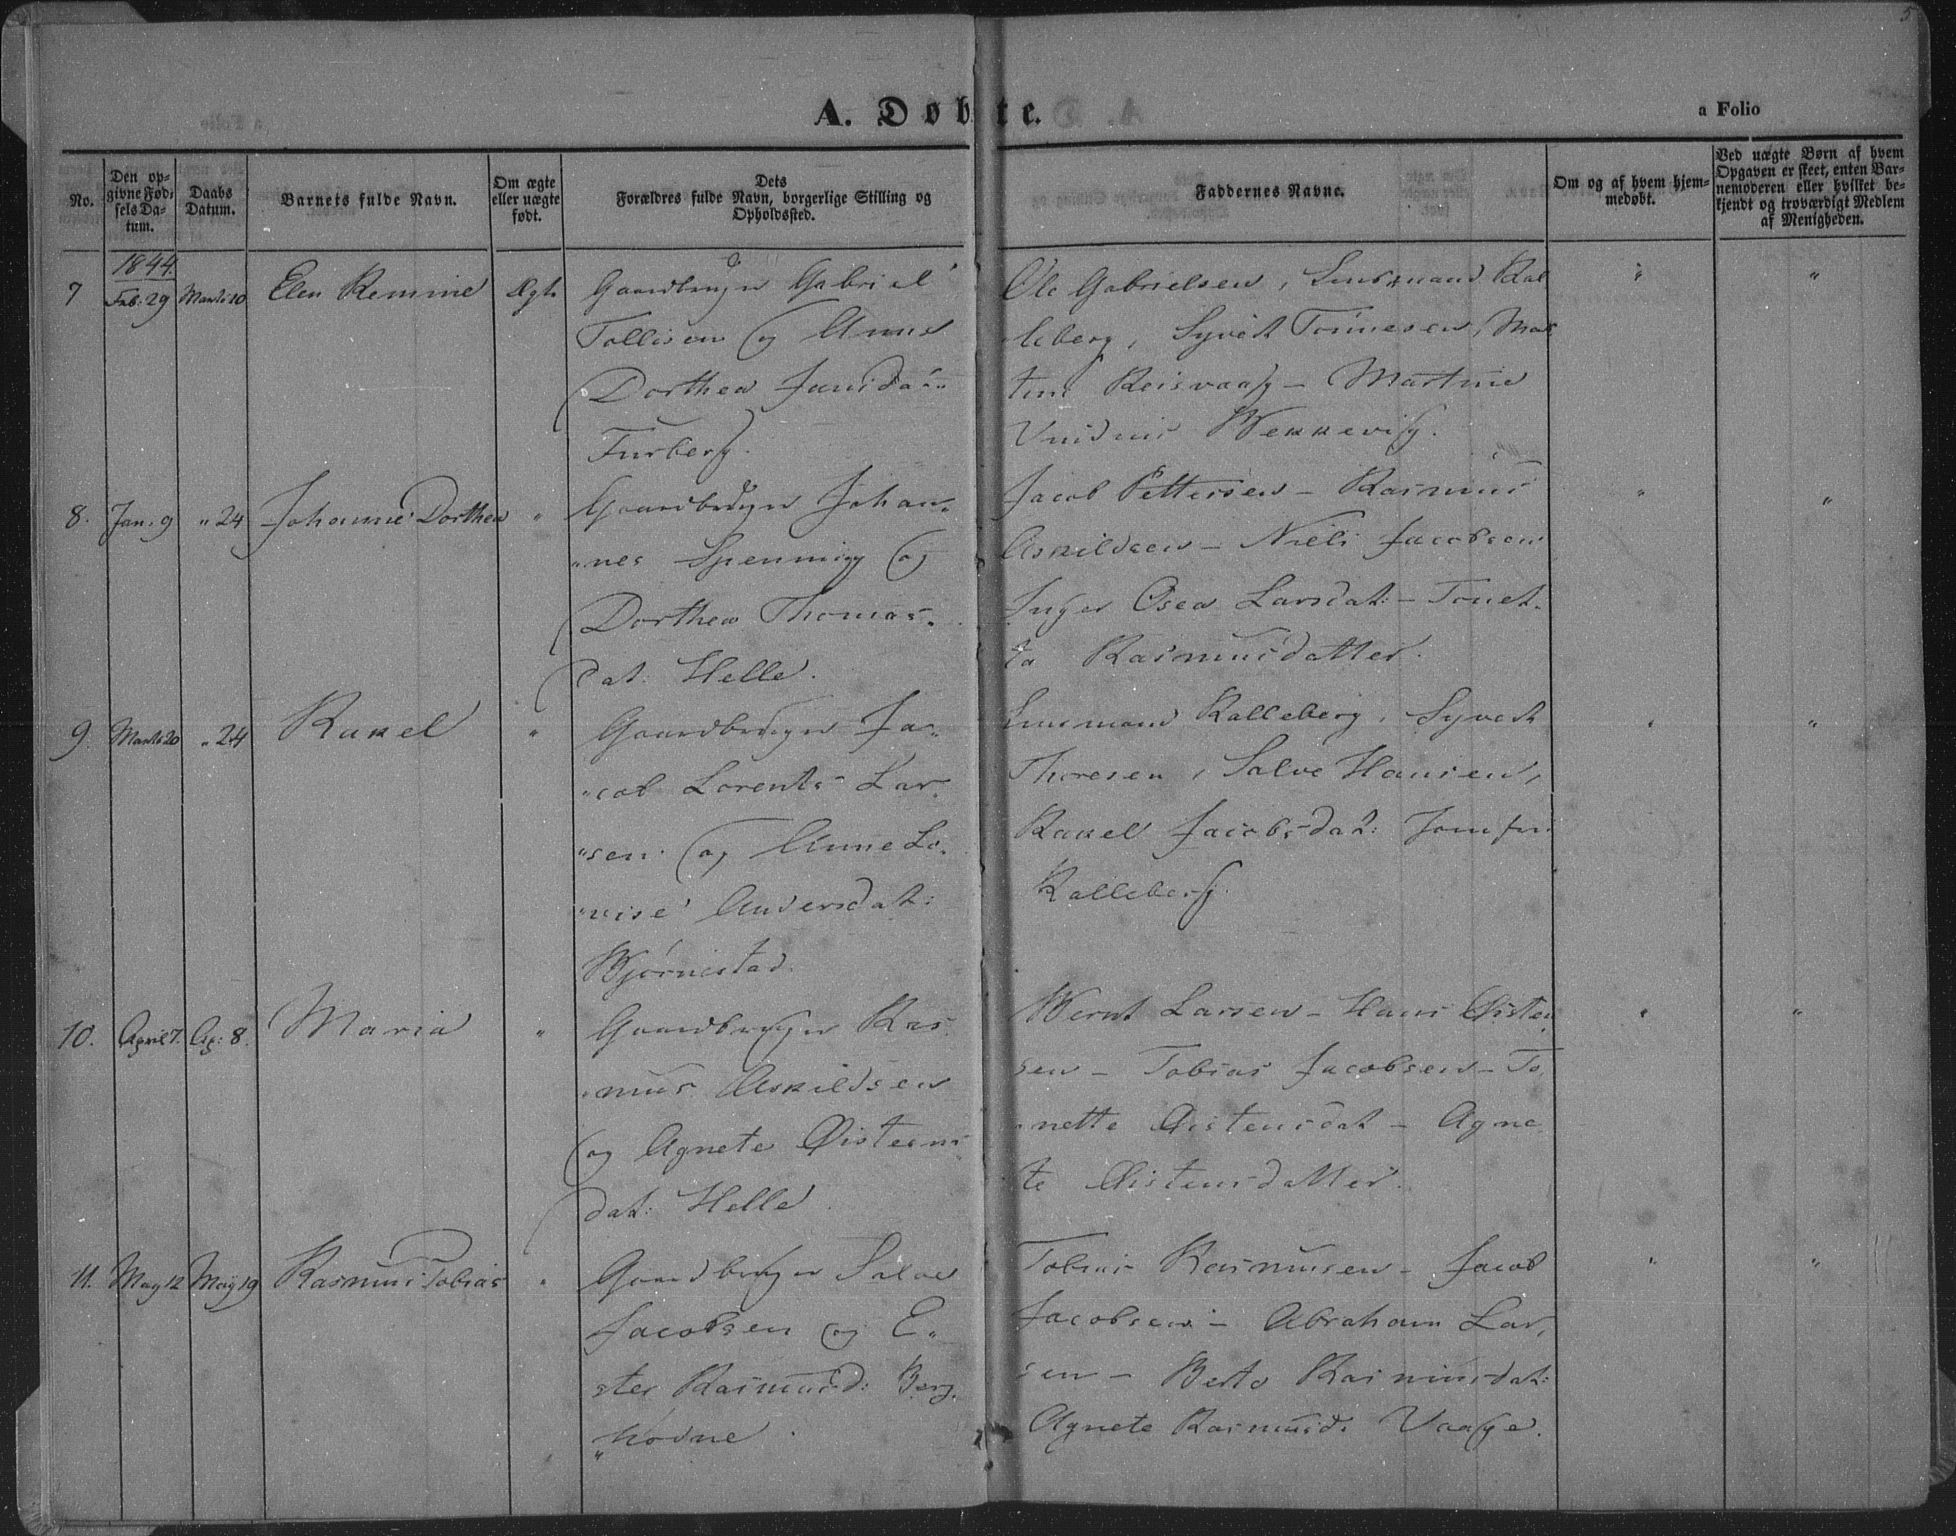 5
A. Døbte.
a Folio
No.
Den opgivne Fødselsdatum.
Daabs Datum.
Barnets fulde Navn.
Om ægte eller uægte født.
Dets Forældres fulde Navn, borgerlige Stilling og Opholdssted.
Faddernes Navne.
Om og af hvem hjemmedøbt.
Ved uægte Børn af hvem Opgaven er skeet, enten Barnemoderen eller hvilket bekjendt og troværdigt Medlem af Menigheden.
1844.
7 Feb: 29 Marts 10 Elen Remine Ægte Gaardbruger Gabriel
Tollisen og Anne
Dorthea Jensdat:
Furberg.
Ole Gabrielsen, Lensmand Kal
leberg, Syvert Tønnesen, Mar
tin Reisvaag - Martine
Wekkevig.
8. Jan. 9 " 24 Johanne Dorthea " Gaardbruger Johan"
"nes Spenning og
Dorthea Thomas"
dat: Helle.
Jacob Pettersen - Rasmus
Askildsen - Niels Jacobsen
Inger Osea Larsdat: - Tonet"
ta Rasmusdatter.
9. Marts 20 " 24 Rakel " Gaardbruger Ja"
"cob Lorents Lar"
"sen og Anne Lo"
"vise Andersdat:
Bjørnestad.
Lensmand Kalleberg, Syvert
Thoresen, Salve Hansen,
Rakel Jacobsdat: Jomfru
Kalleberg.
10. April 7. Ap: 8. Maria " Gaardbruger Ras
"mus Askildsen
og Agnete Øisteens
dat: Helle.
Bernt Larsen - Hans Øisten
sen - Tobias Jacobsen - To
"nette Øistensdat - Agne
te Øistensdatter.
11. May 12 May 19 Rasmus Tobias " Gaardbruger Salve
Jacobsen og E"
ster Rasmusd: Berg"
"hovne.
Tobias Rasmusen - Jacob
Jacobsen - Abraham Lar"
sen - Berte Rasmusdat:
Agnete Rasmusd: Vaage.